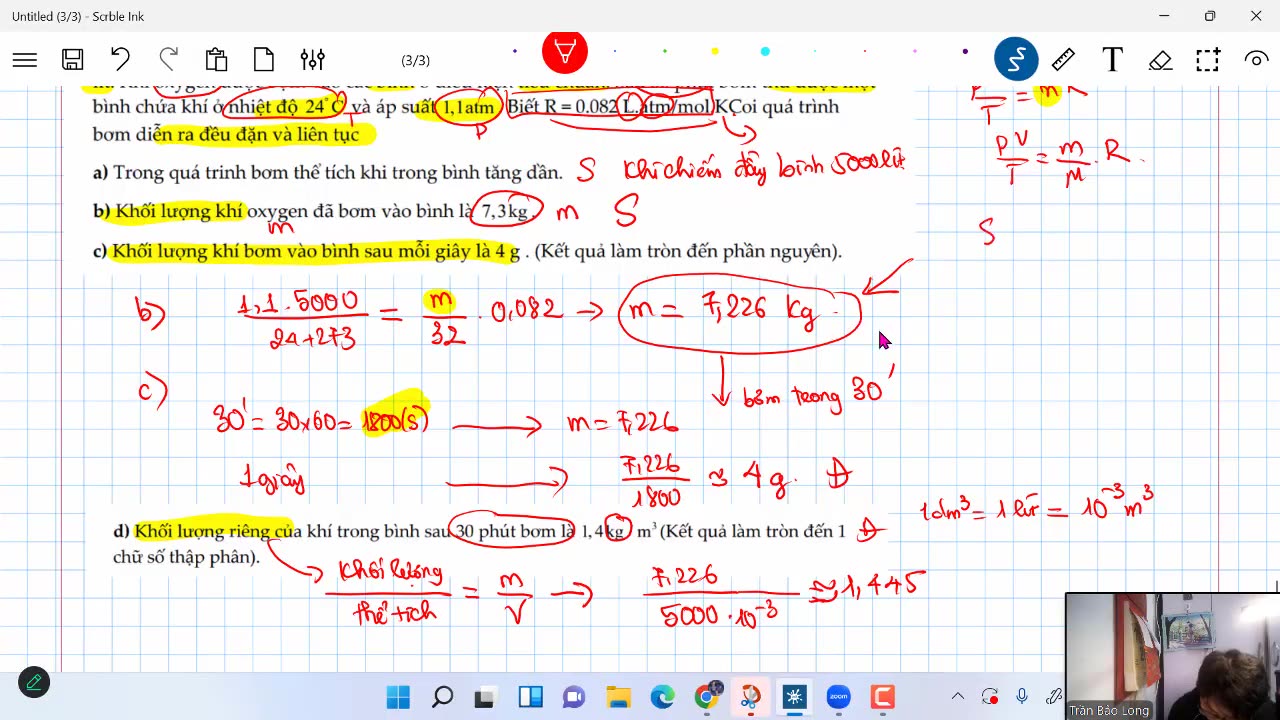 Untitled (3/3) - Scrble Ink
(3/3)
bình chứa khí ở nhiệt độ 24°C và áp suất 1,1atm Biết R = 0.082 L.atm/mol.K Coi quá trình
T
P
bơm diễn ra đều đặn và liên tục
PV/T = m/M . R
a) Trong quá trinh bơm thể tích khi trong bình tăng dần. S khí chiếm đầy bình 5000 lít
b) Khối lượng khí oxygen đã bơm vào bình là 7,3kg. m S
m
S
c) Khối lượng khí bơm vào bình sau mỗi giây là 4 g . (Kết quả làm tròn đến phần nguyên).
b) 1,1.5000/24+273 = m/32 . 0,082 → m = 7,226 kg.
c)
bơm trong 30'
30' = 30x60 = 1800(s) → m = 7,226
1 giây → 7,226/1800 ≈ 4g. Đ
1dm³ = 1 lít = 10⁻³ m³
d) Khối lượng riêng của khí trong bình sau 30 phút bơm là 1,4 kg m³ (Kết quả làm tròn đến 1 Đ
chữ số thập phân).
Khối lượng/thể tích = m/V → 7,226/5000.10⁻³ ≈ 1,445
Trần Bảo Long
zoom